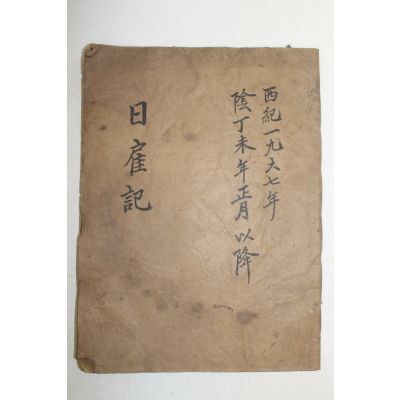 西紀一九六七年
陰丁未年正月以降
日雇記